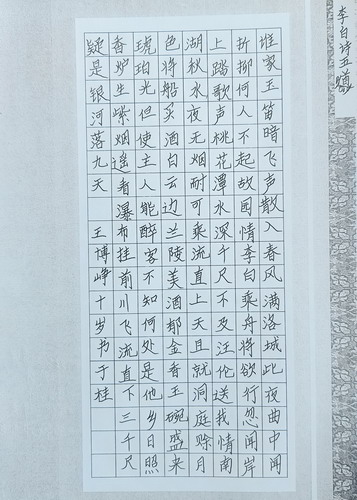 李白诗五首
谁家玉笛暗飞声散入春风满洛城此夜曲中闻
折柳何人不起故园情李白乘舟将欲行忽闻岸
上踏歌声桃花潭水深千尺不及汪伦送我情南
湖秋水夜无烟耐可乘流直上天且就洞庭赊月
色将船买酒白云边兰陵美酒郁金香玉碗盛来
琥珀光但使主人能醉客不知何处是他乡日照
香炉生紫烟遥看瀑布挂前川飞流直下三千尺
疑是银河落九天 王博峥十岁书于桂